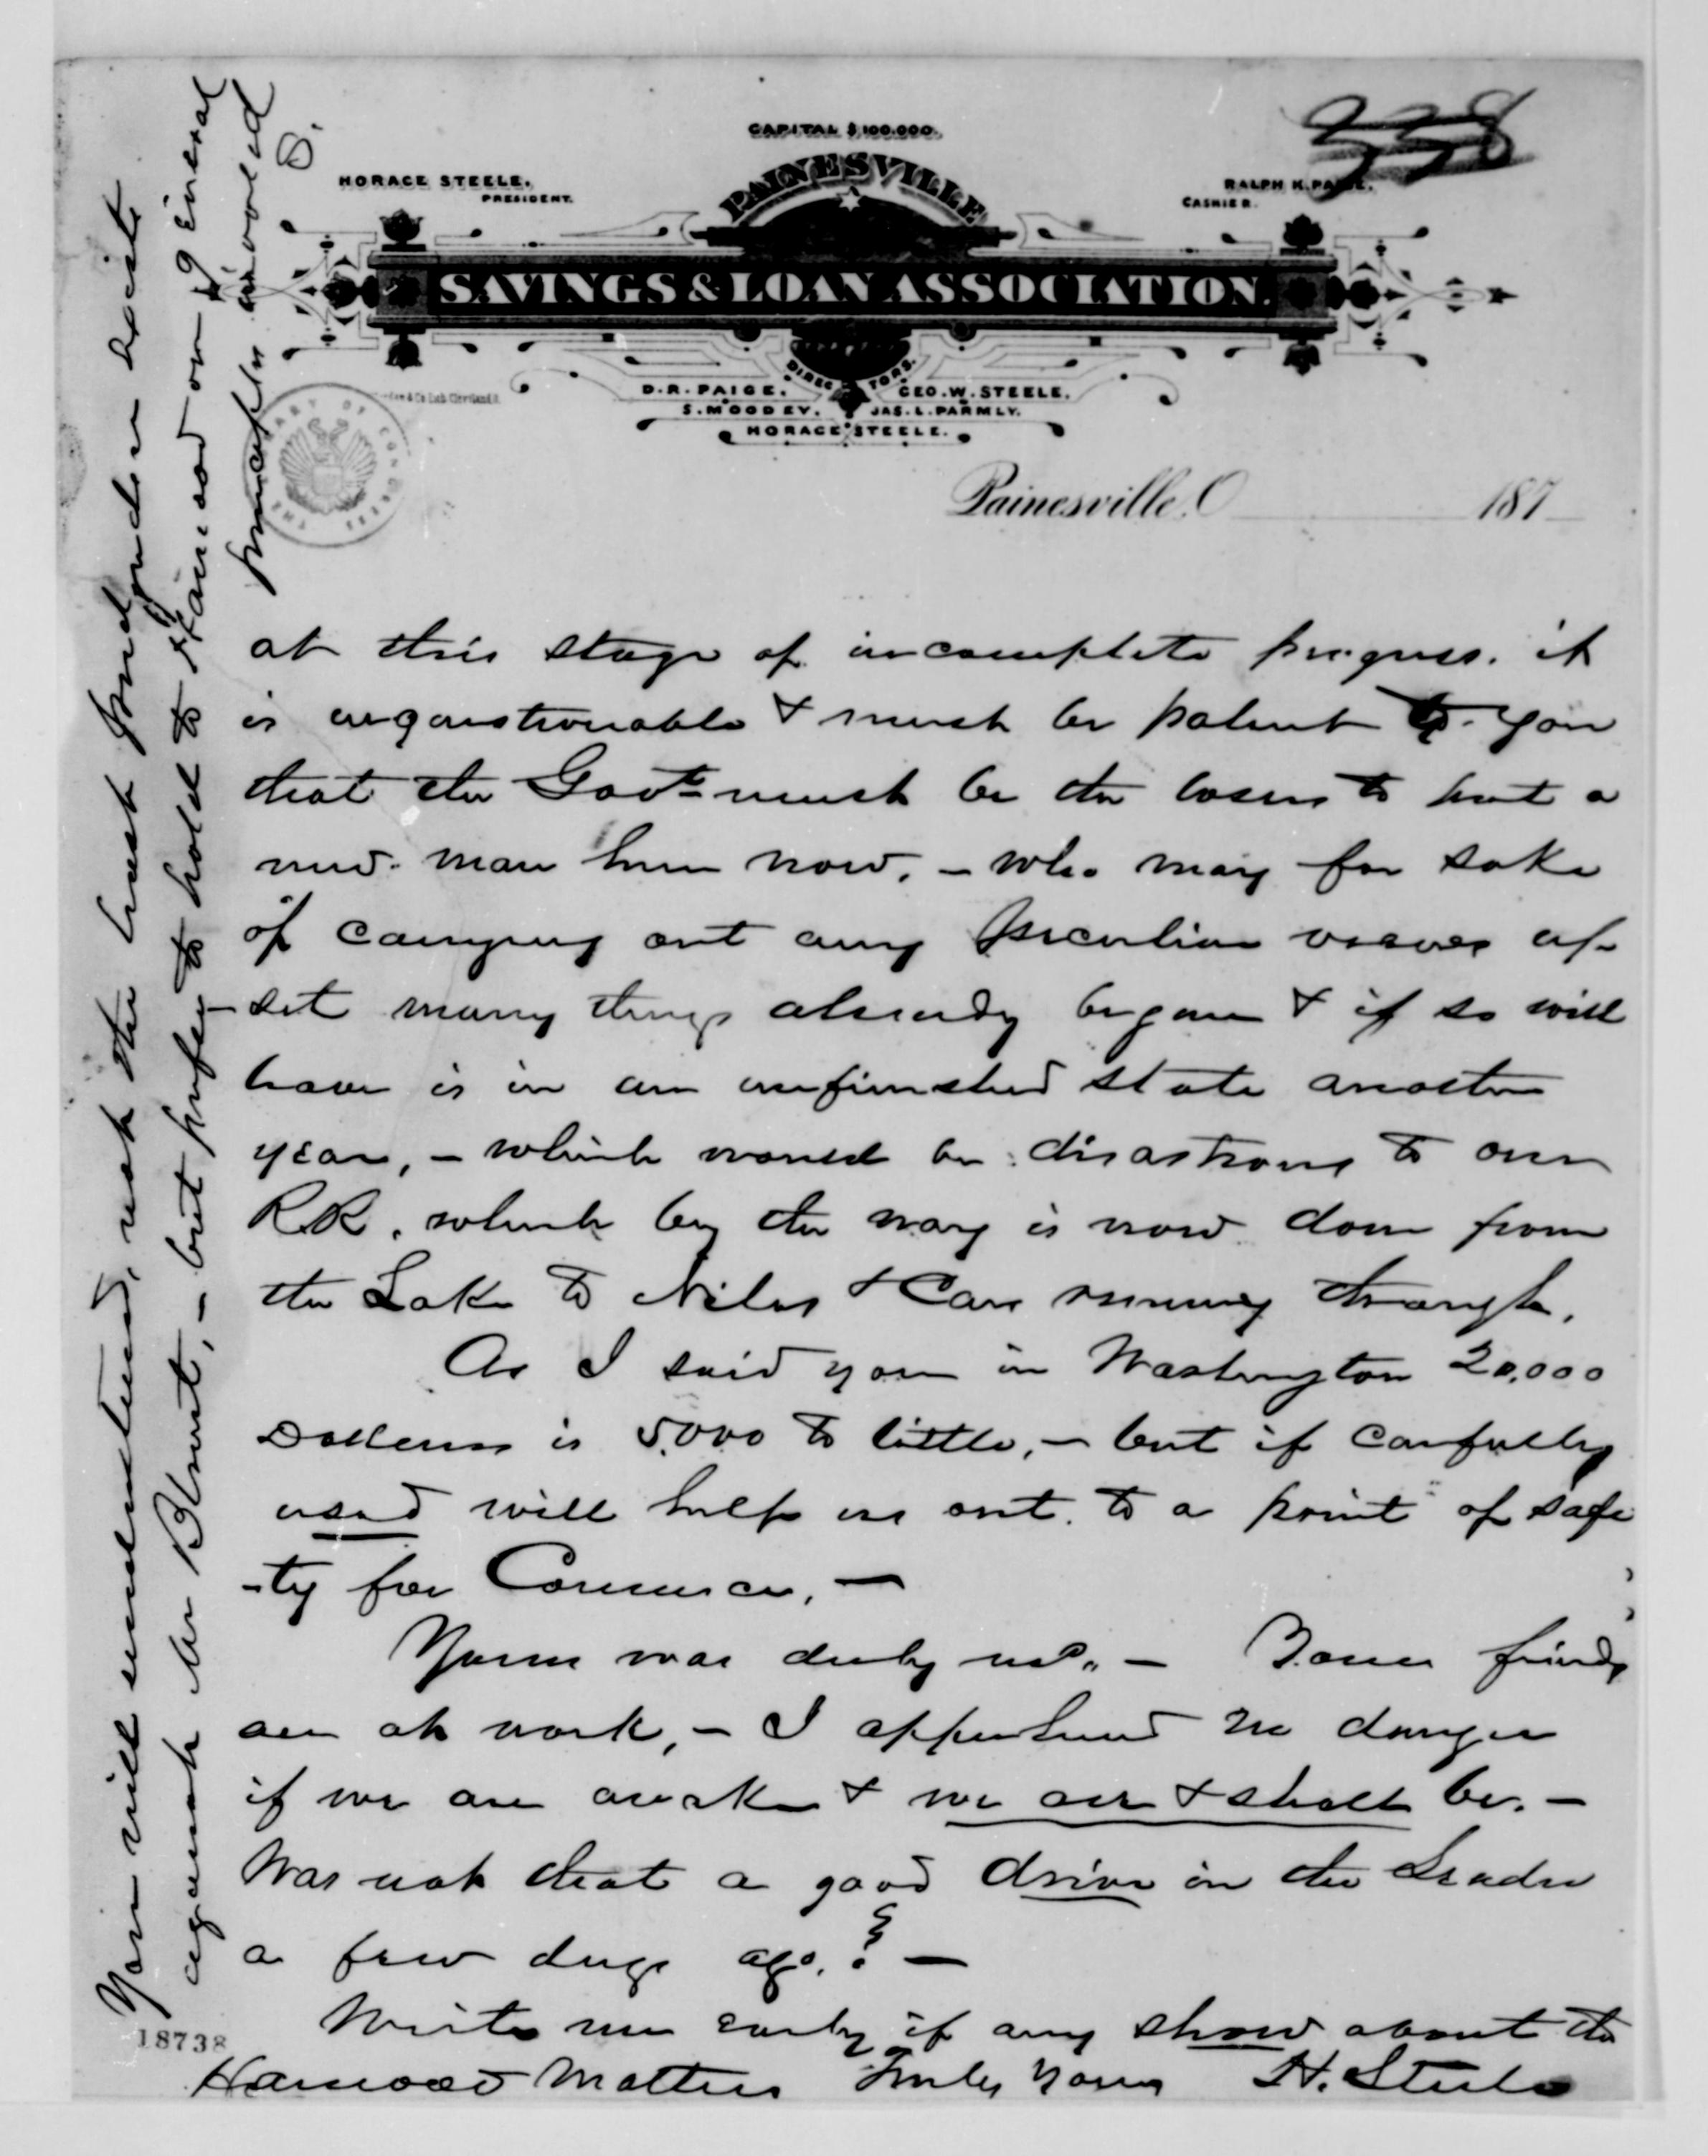 338
CAPITAL $100.000.
HORACE STEELE,
PRESIDENT.
RALPH K. PAIGE,
CASHIER.
PAINESVILLE
SAVINGS & LOAN ASSOCIATION.
DIRECTORS.
D. R. PAIGE. GEO. W. STEELE.
S. MOODEY. JAS. L. PARMLY.
HORACE STEELE.
Painesville, O 187
at this stage of incomplete progress. it
is unquestionable & must be patent to you
that the Govt must be the losers to put a
new man here now. - who may for sake
of carrying out any peculiar views up-
set many things already begun & if so will
leave is in an unfinished state another
year, - which would be disastrous to our
RR. which by the way is now done from
the Lake to Niles & Cars running through.
As I said you in Washington 20,000
Dollars is 5.000 to little, - but if carfully
used will help us out to a point of safe
-ty for Commerce. -
Yours was duly recd. - Your friends
are at work, - I apprehend no danger
if we are awake & we are & shall be. -
Was not that a good drive in the Leader
a few days ago.? -
Write me early if any show about the
Harwood Matters Truly Yours H. Steele
You will understand, not the least prejudice exists
against Mr Blunt, - but prefer to hold to Harwood on general
principles involved
S.
18738